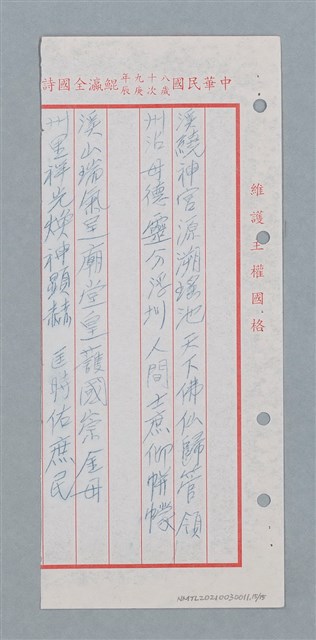 中華民國八十九年歲次庚辰鯤瀛全國詩
維護主權國格
溪繞神宮源溯瑤池天下佛仙歸管領
州沾母德靈分浮圳人間士庶仰帡幪
溪山瑞氣呈廟堂皇護國崇金母
州里祥光煥神顯赫匡時佑庶民
NMTL20210030011,15/15